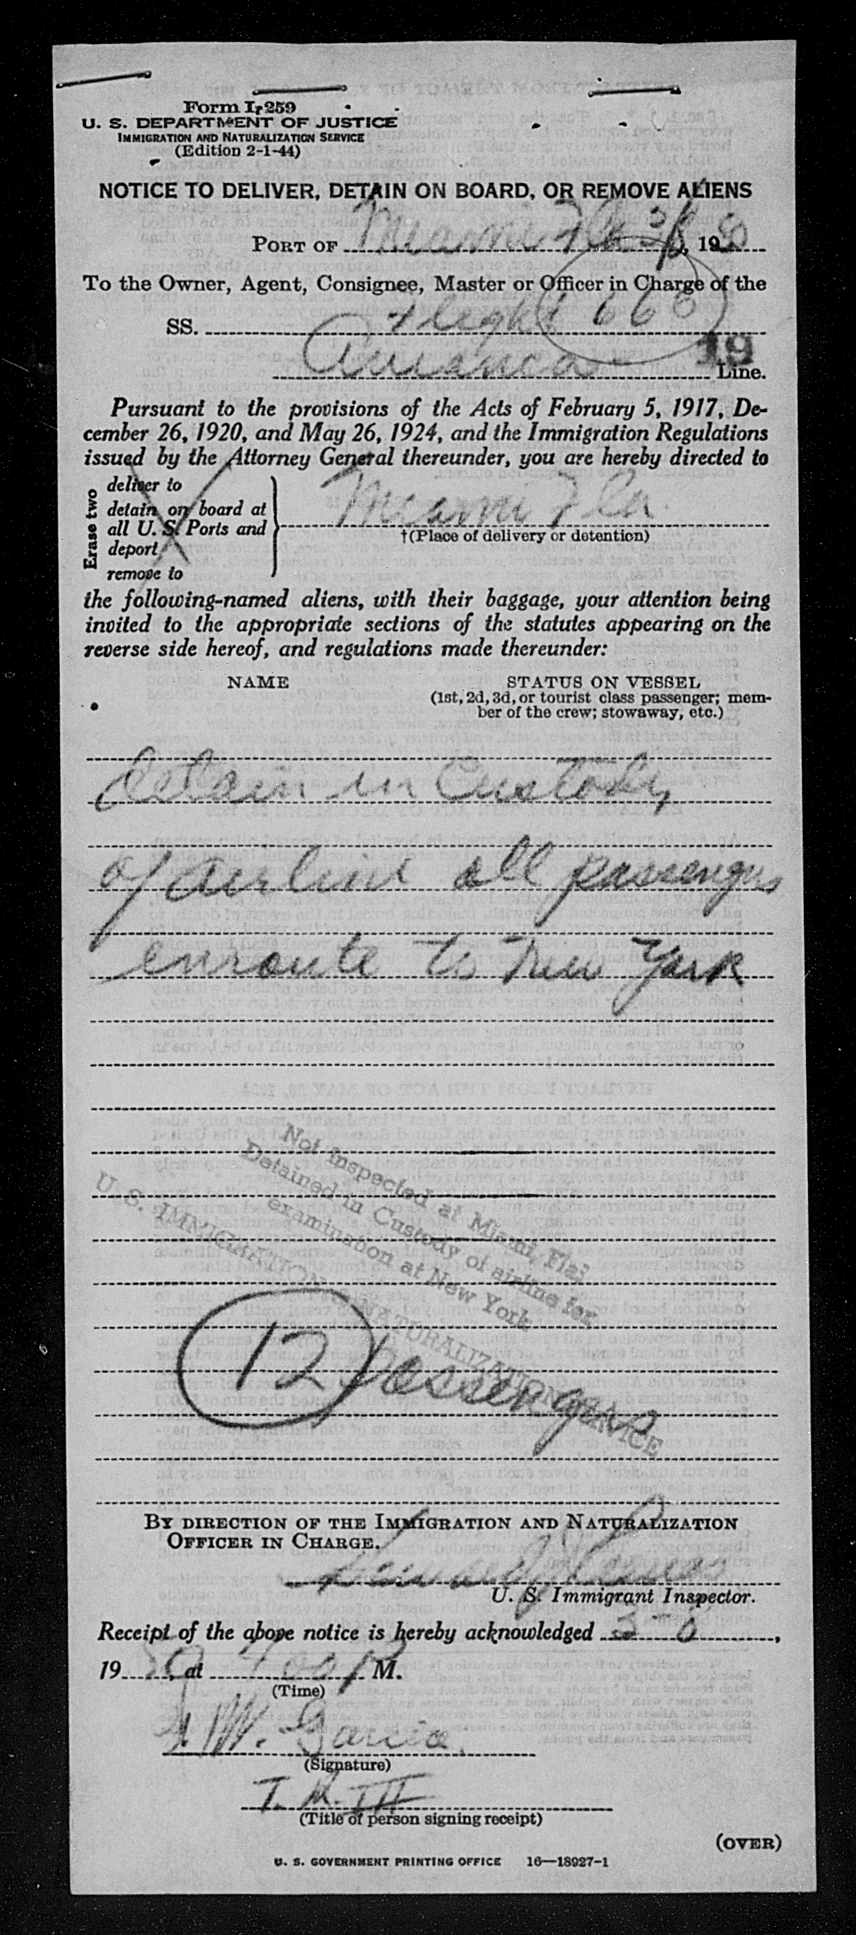 Form I-259
U. S. DEPARTMENT OF JUSTICE
IMMIGRATION AND NATURALIZATION SERVICE
(Edition 2-1-44)
NOTICE TO DELIVER, DETAIN ON BOARD, OR REMOVE ALIENS
PORT OF Miami Fla 3/8, 1950
To the Owner, Agent, Consignee, Master or Officer in Charge of the
SS. Flight 660
19
Avianca Line.
Pursuant to the provisions of the Acts of February 5, 1917, De-
cember 26, 1920, and May 26, 1924, and the Immigration Regulations
issued by the Attorney General thereunder, you are hereby directed to
Erase two
deliver to
detain on board at
all U. S. Ports and
deport
remove to
Miami Fla.
†(Place of delivery or detention)
the following-named aliens, with their baggage, your attention being
invited to the appropriate sections of the statutes appearing on the
reverse side hereof, and regulations made thereunder:
NAME STATUS ON VESSEL
(1st, 2d, 3d, or tourist class passenger; mem-
ber of the crew; stowaway, etc.)
detain in Custody
of airline all passengers
enroute to New York
Not inspected at Miami, Fla;
Detained in Custody of airline for
examination at New York
U. S. IMMIGRATION & NATURALIZATION SERVICE
12 Passengers
BY DIRECTION OF THE IMMIGRATION AND NATURALIZATION
OFFICER IN CHARGE.
U. S. Immigrant Inspector.
Receipt of the above notice is hereby acknowledged 3-8,
1950, at 400 P M.
(Time)
W. Garcia
(Signature)
T. M.
(Title of person signing receipt)
(OVER)
U. S. GOVERNMENT PRINTING OFFICE 16—18927-1